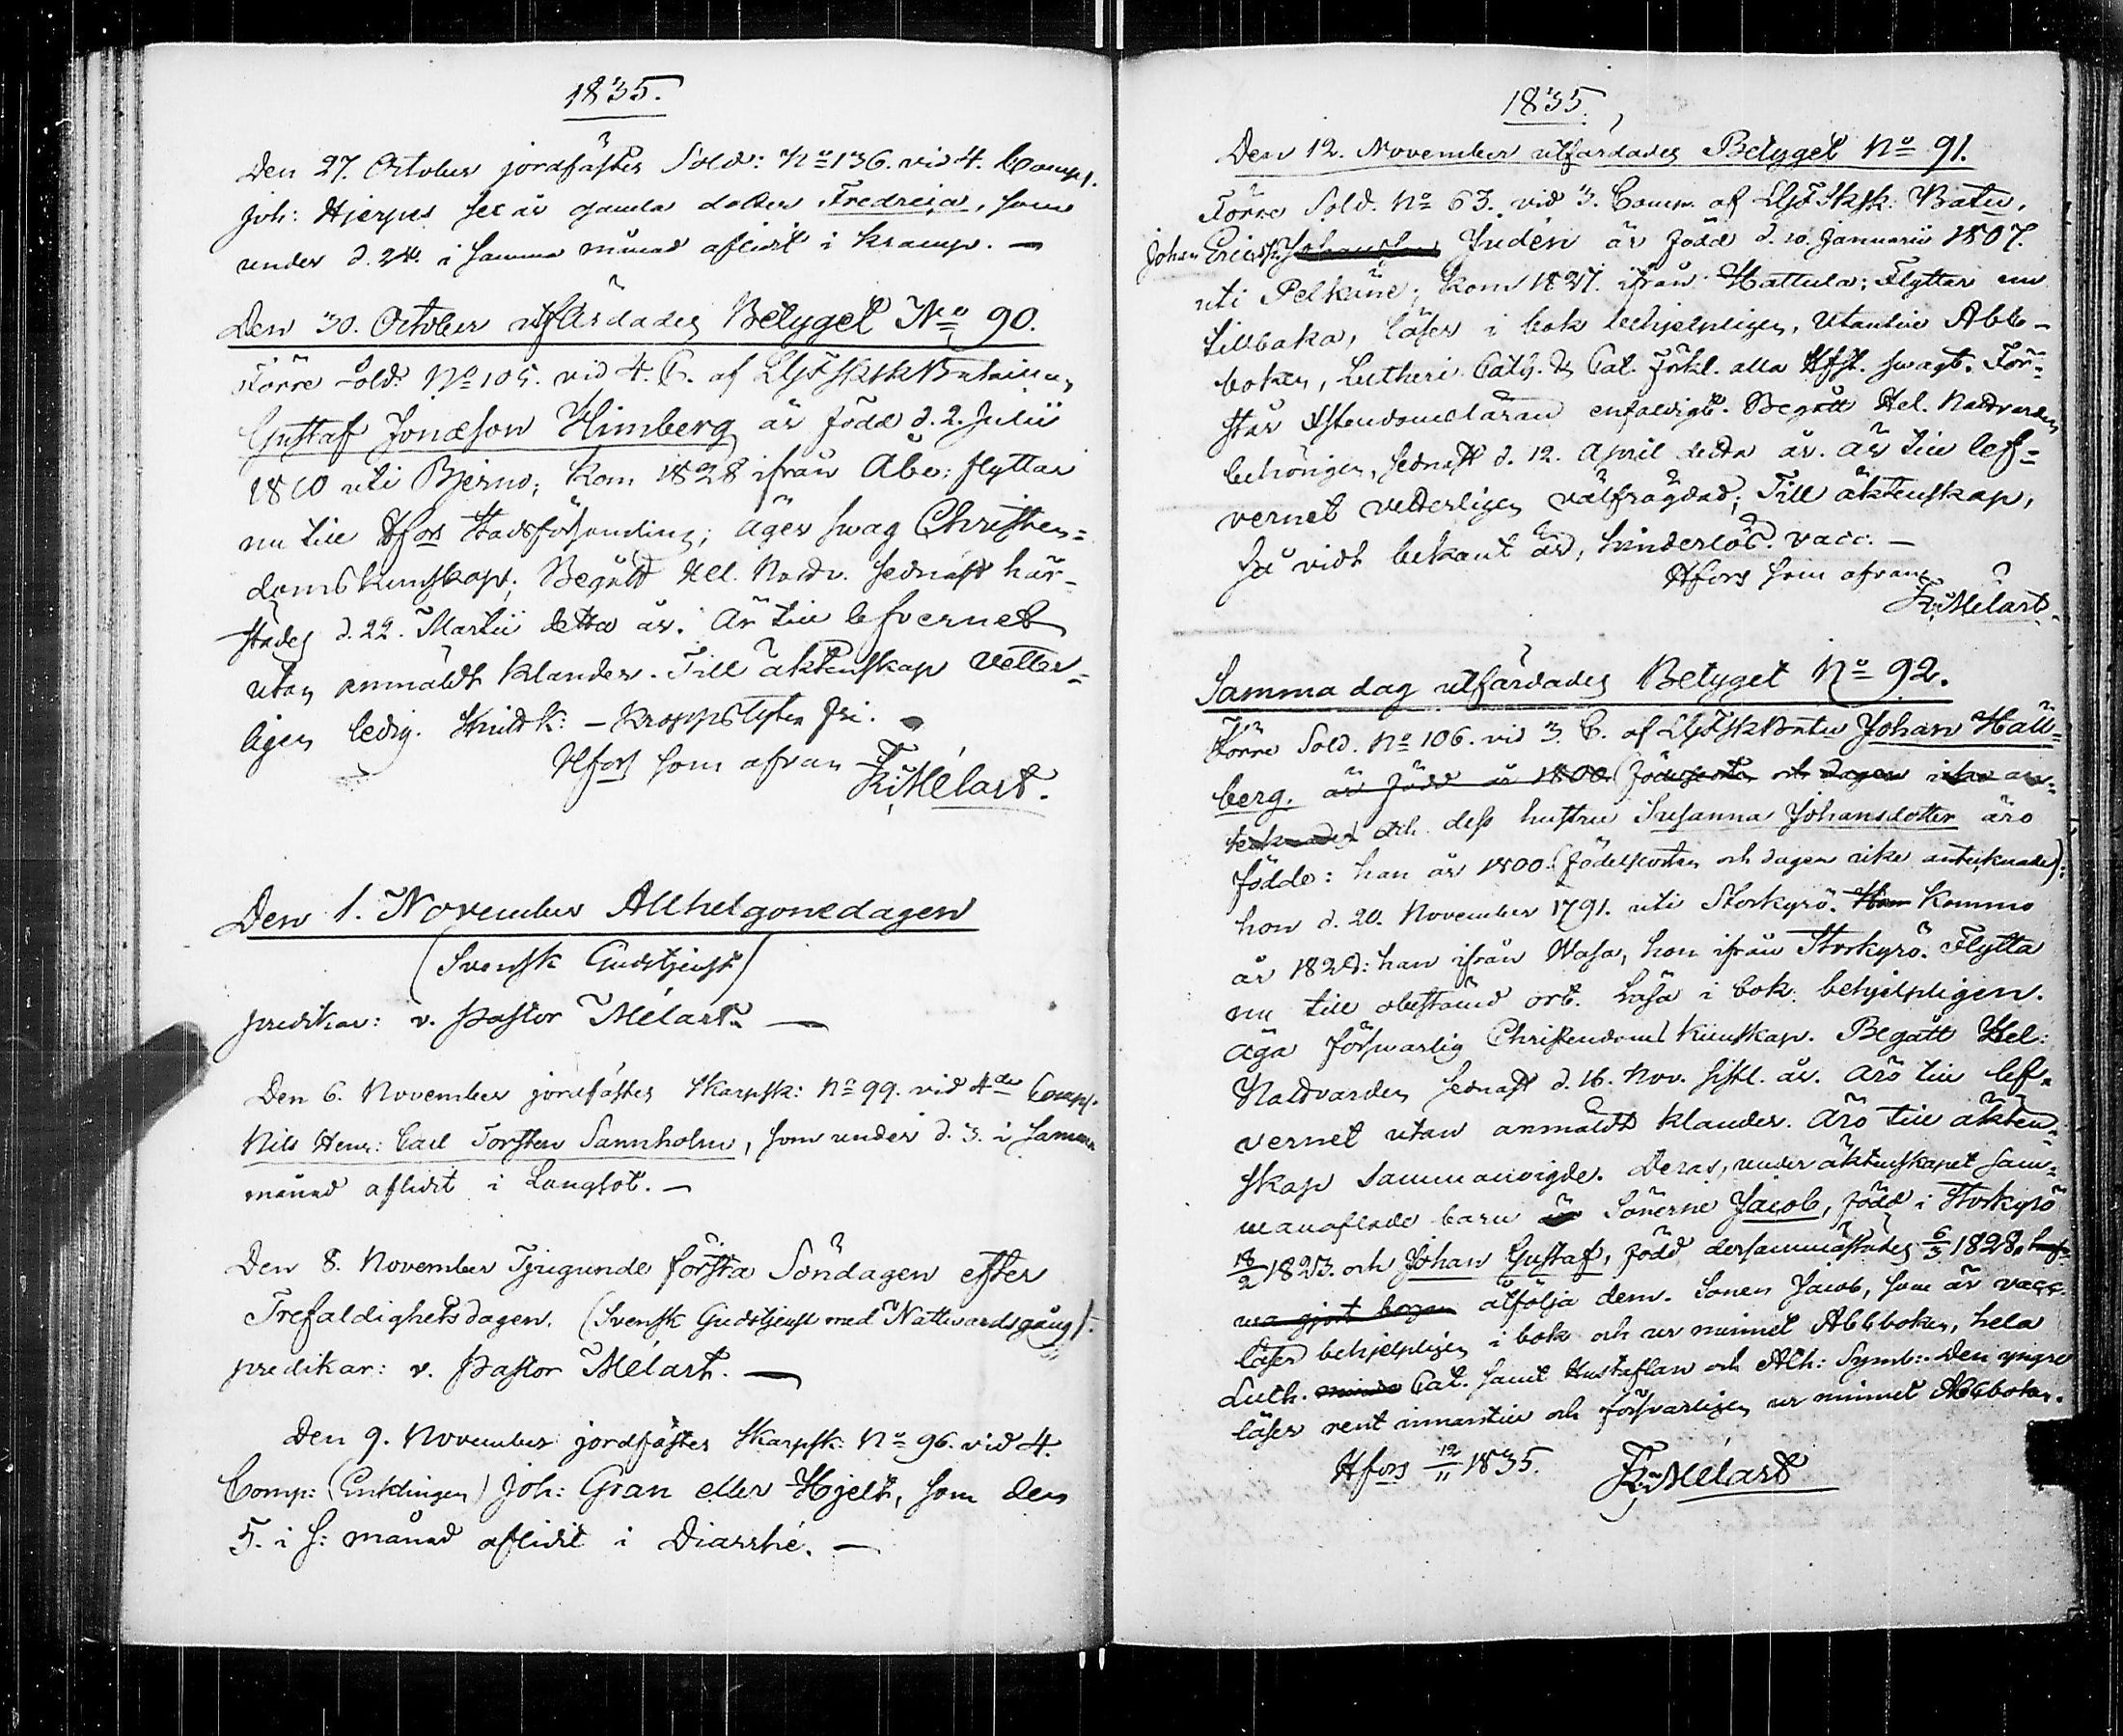 1835.
Den 27. October jordfästes Sold: No 136. vid 4. Comp.
Joh: Hjerpes sex år gamla dotter Fredrica, som
under d. 24. i samma månad aflidit i kramp. —
Den 30. October utfärdades Betyget No 90.
Förre Sold. No 105. vid 4. C. af LGFSkSkBataillon,
Gustaf Jonæson Himberg är född d. 2. Julii
1810 uti Bjerno; kom 1828 ifrån Åbo; flyttar
nu till Hfors Stadsförsamling; äger svag Christen=
doms kunskap; Begått Hel. Nattv. sednast här-
städes d. 22. Martii detta år. Är till lefvernet
utan anmäldt klander. Till äktenskap vetter=
ligen ledig. – Kroppslyten fri. –
Hfors som ofvan
Fr. Mélart.
Den 1. November Allhelgonedagen
(Svensk Gudstjenst)
predikar: v. Pastor Mélart. —
Den 6. November jordfästes Skarpsk: No 99. vid 4de Comp.
Nils Henr: Carl Torsten Sannholm, som under d. 3. i samma
månad aflidit i Lungsot. —
Den 8. November Tjugunde första Söndagen efter
Trefaldighetsdagen. (Svensk Gudstjenst med Nattvardsgång).
predikar: v. Pastor Mélart. —
Den 9. November jordfästes Skarpsk: No 96. vid 4.
Comp: (Enklingen) Joh: Gran eller Hjelt, som den
5. i s: månad aflidit i Diarrhé. —
1835.
Den 12. November utfärdades Betyget No 91.
Förre Sold. No 63. vid 3. Comp. af LGFSkSk: Batn,
Johan Ericss: Johansson Judén är född d. 10. Januarii 1807.
uti Pelkäne; kom 1827. ifrån Hattula; Flyttar nu
tillbaka, läser i bok behjelpligen, utantill Abb-
boken, Lutheri Cath. & Cat. förkl. alla Hfst. svagt. För=
står Xstendomsläran enfaldigt. Begått Hel. Nattvarden
behörigen, sednast d. 12. April detta år. Är till lef=
vernet vetterligen välfrägdad; Till äktenskap,
så vidt bekant är, hinderlös. vacc. —
Hfors som ofvan
Fr. Mélart.
Samma dag utfärdades Betyget No 92.
Förre Sold. No 106. vid 3. C. af LGFSkSkBatn Johan Häll=
berg, är född år 1800. (födelseorten och dagen icke an=
tecknade) och dess hustru Susanna Johansdotter äro
födde: han år 1800. (födelseorten och dagen icke antecknade);
hon d. 20. November 1791. uti Storkyrö. Han Kommo
år 1820: han ifrån Wasa, hon ifrån Storkyrö. Flytta
nu till obestämd ort. Läsa i bok behjelpligen.
Äga försvarlig Christendoms kunskap. Begått Hel:
Nattvarden sednast d. 16. Nov. sistl. år. Äro till lef=
vernet utan anmäldt klander. Äro till äkten=
skap sammanvigde. Deras, under äktenskapet sam=
manaflade barn är Sönerne Jacob, född i Storkyrö
18/2 1823. och Johan Gustaf, född dersammastädes 6/3 1828,
åtfölja dem. Sonen Jacob, som är vacc.
läser behjelpligen i bok och ur minnet Abbboken, hela
Luth. mindre Cat. samt Hustaflan och Ath: Symb:. Den yngre
läser rent innantill och försvarligen ur minnet Abbboken.
Hfors 12/11 1835.
Fr. Mélart